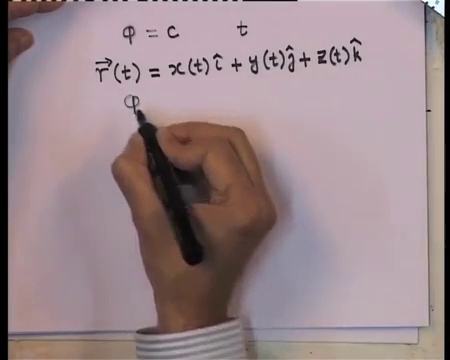 φ = c t
r⃗(t) = x(t)î + y(t)ĵ + z(t)k̂
φ